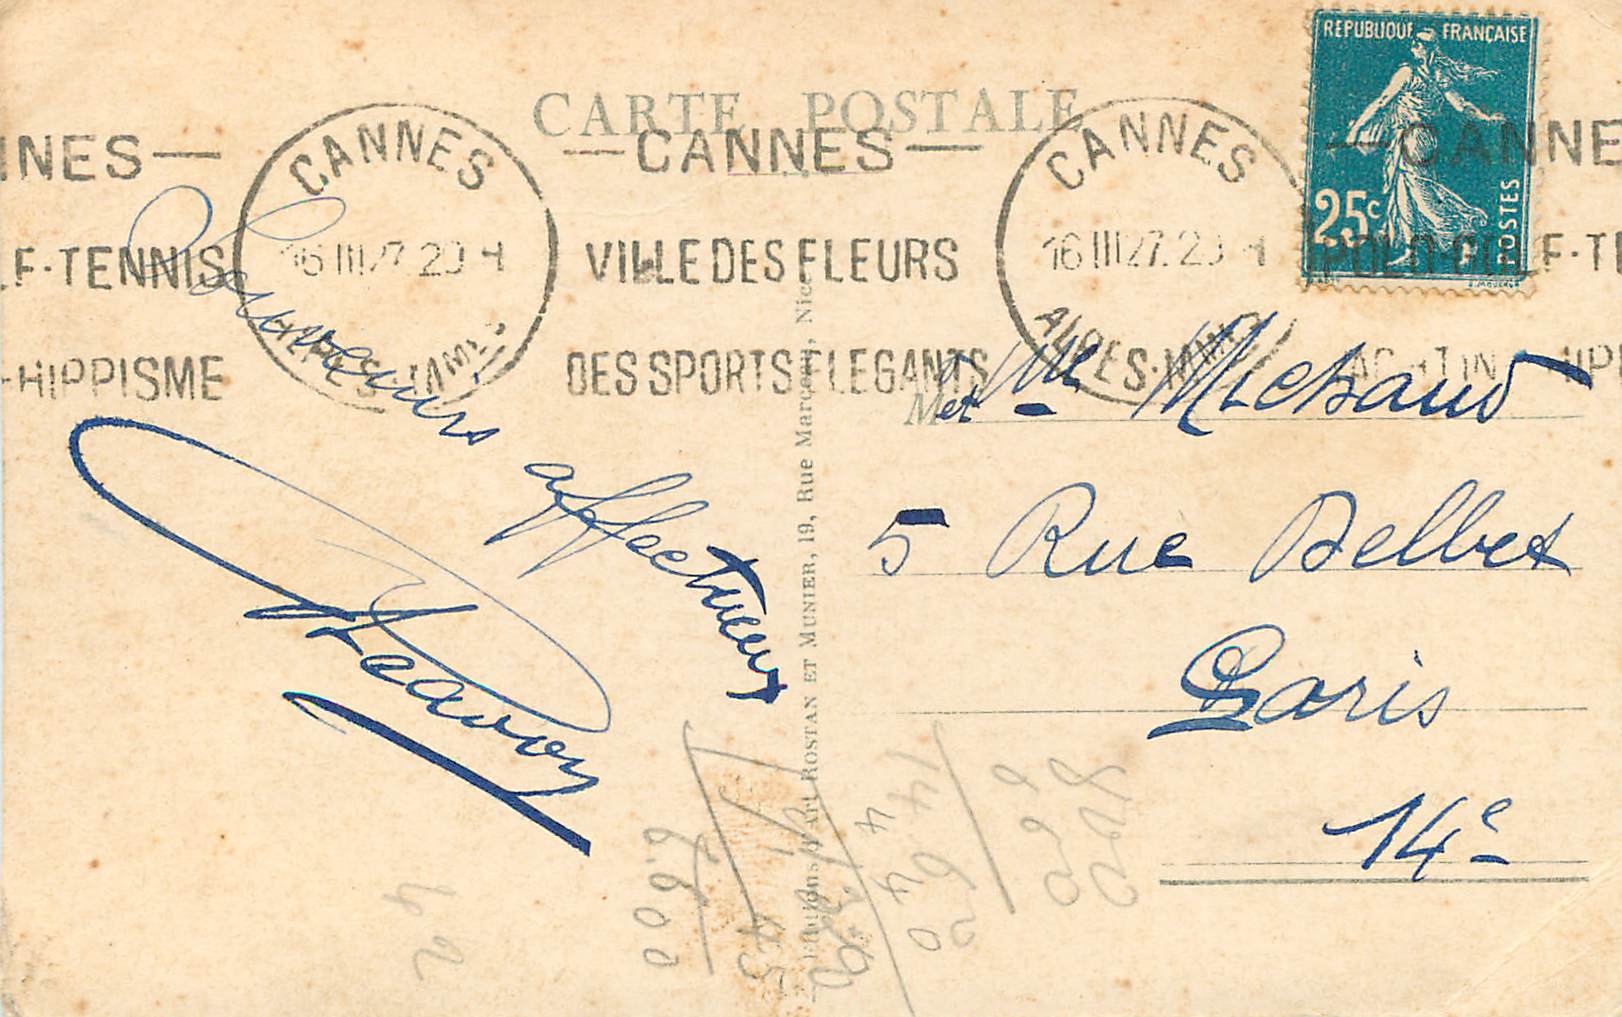 CARTE POSTALE
REPUBLIQUE FRANÇAISE
25c
POSTES
NNES —
F·TENNIS
-HIPPISME
CANNES
16 III 27. 20 H
ALPES·MMES
— CANNES —
VILLE DES FLEURS
DES SPORTS ELEGANTS
CANNES
16 III 27. 20 H
ALPES·MMES
— CANNE
POLO·GOLF·TE
Souvenirs
affectueux
M et Mme Michaud
5 Rue Delbet
Paris
14e
Editions d'Art ROSTAN ET MUNIER, 19, Rue Marceau, Nice
6.600
42